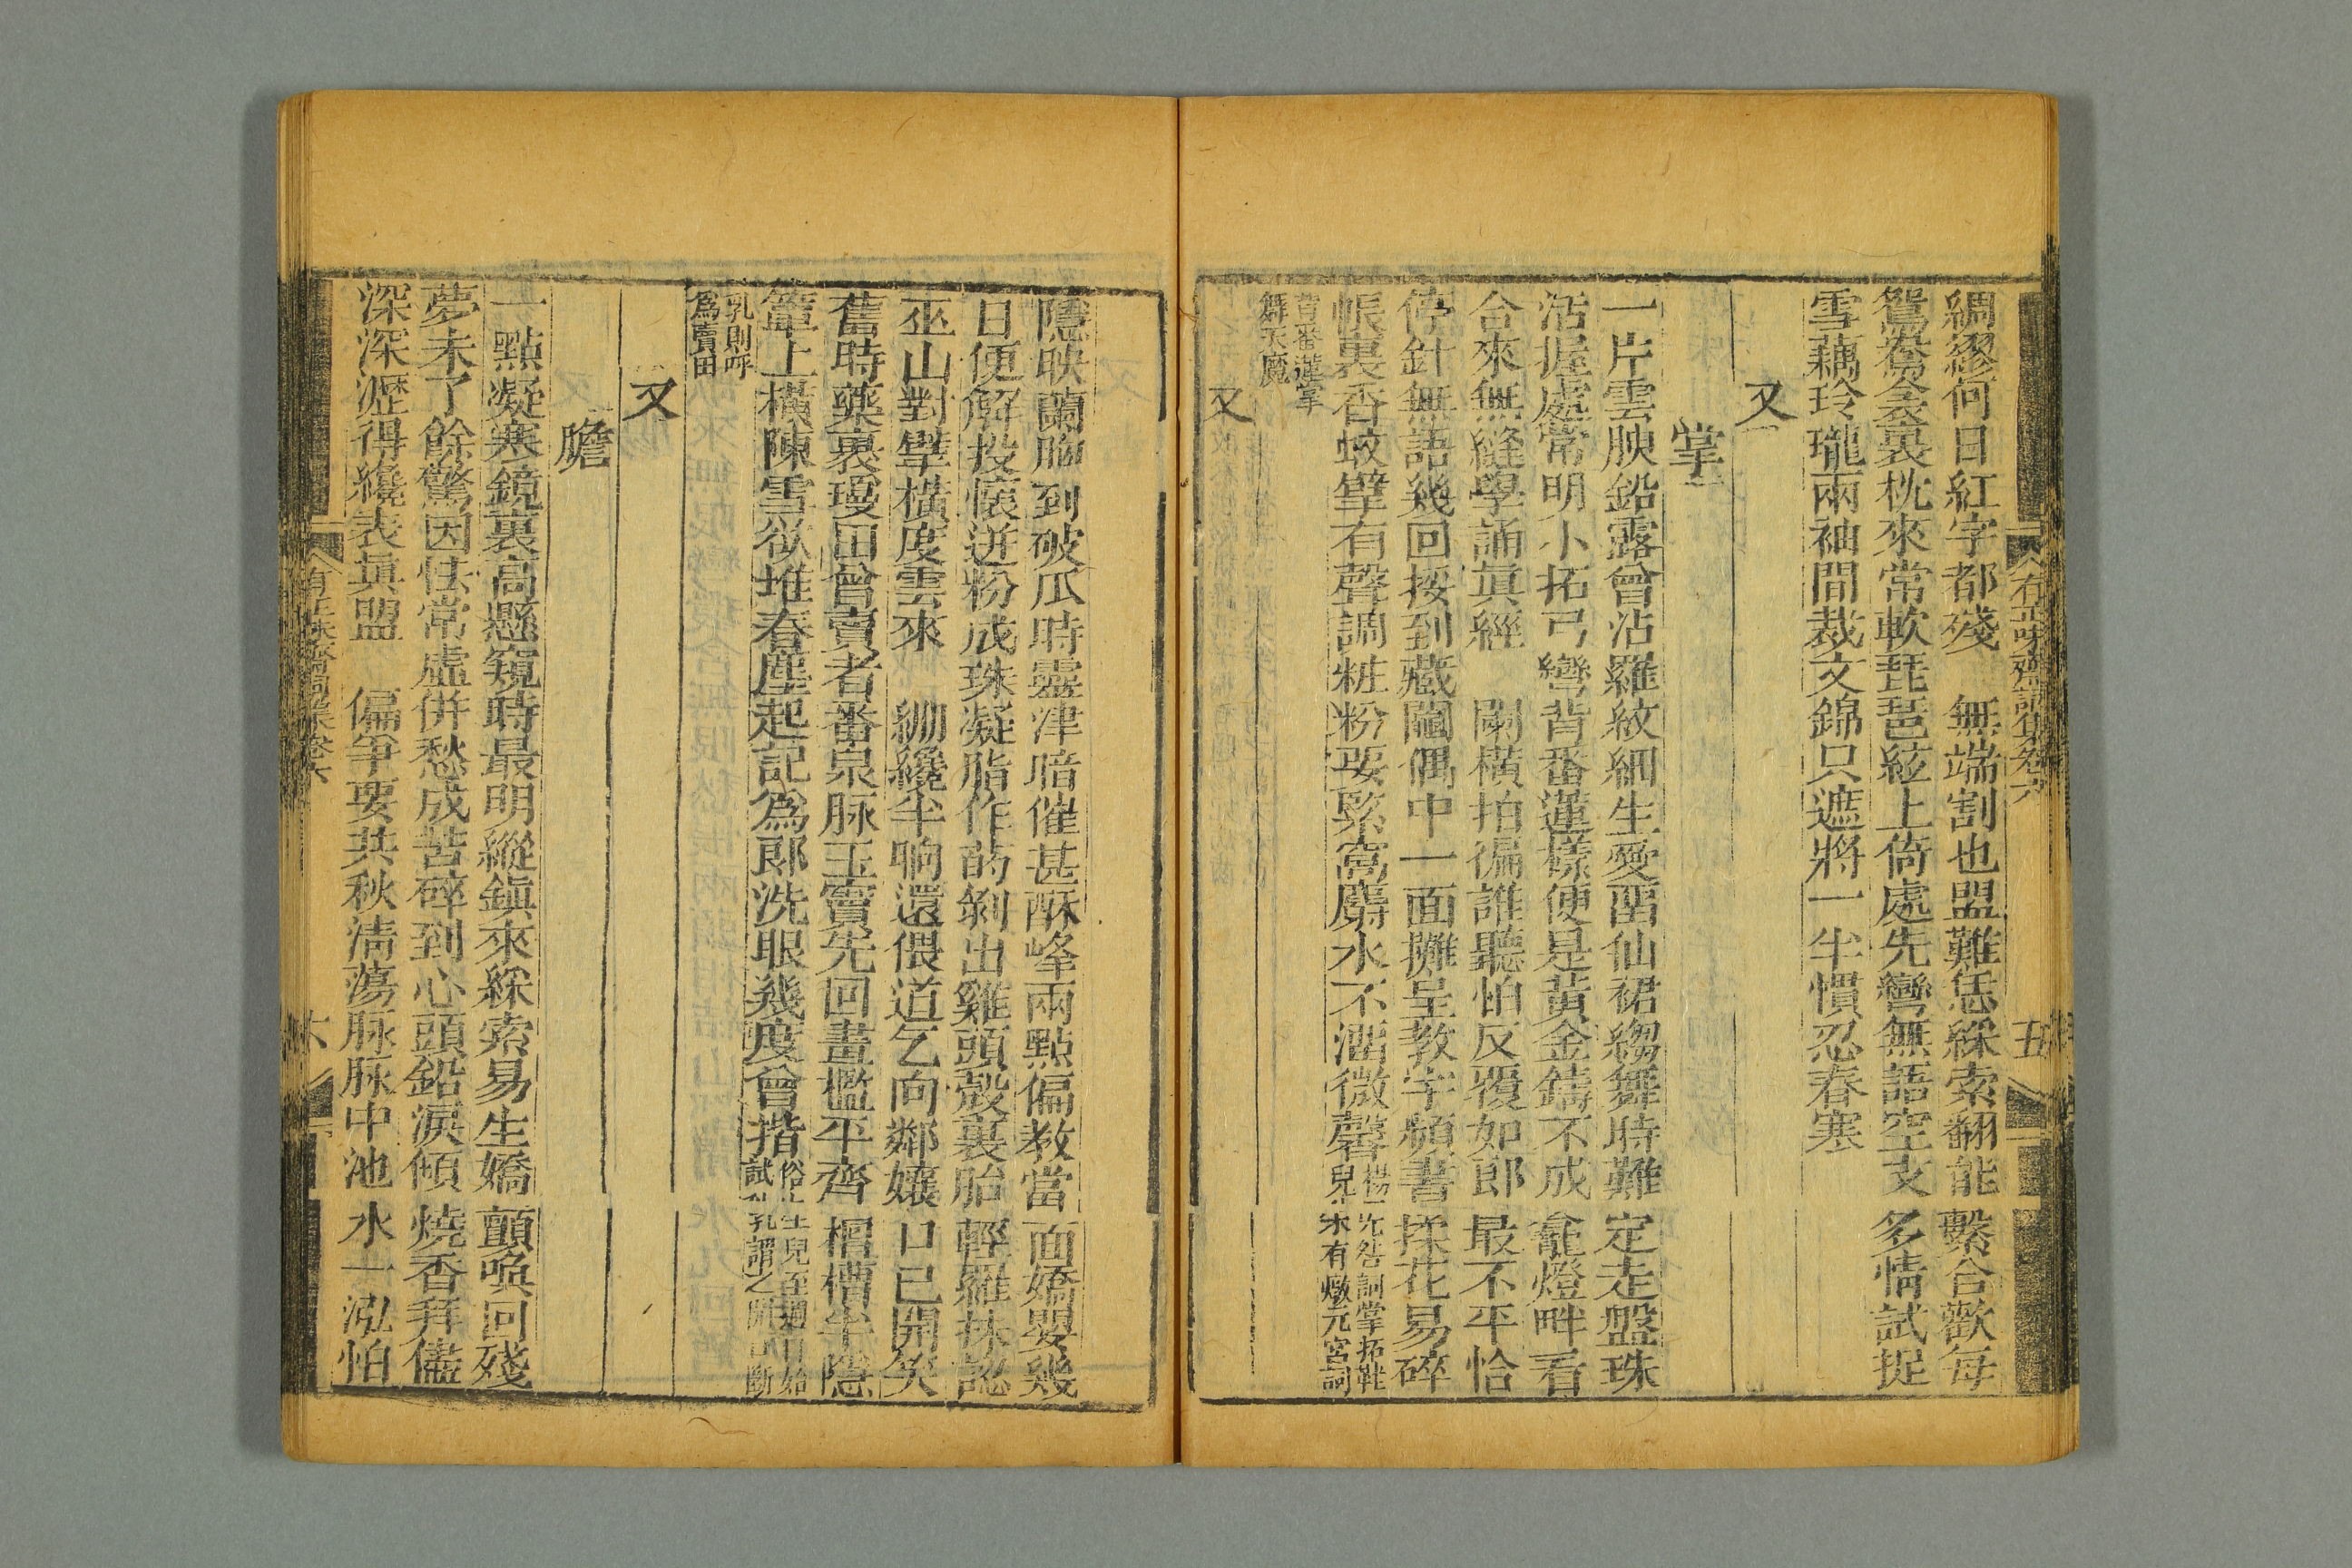 綢繆何日紅字都殘　無端割也盟難恁綵索翻能繫合歡每
鴛鴦衾裏枕來常軟琵琶絃上倚處先彎無語空支多情試捉
雪藕玲瓏兩袖間裁文錦只遮將一半慣忍春寒
又
掌
一片雲腴鉛露曾沾羅紋細生愛留仙裙縐舞時難定走盤珠
活握處常明小拓弓彎背番蓮樣便是黃金鑄不成龕燈畔看
合來無縫學誦真經　闌橫拍徧誰聽怕反覆如郎最不平恰
停針無語幾回挼到藏鬮偶中一面攤呈教字頻書揉花易碎
帳裏香蚊擘有聲調粧粉要緊窩麝水不酒微馨
背番蓮掌
舞天魔
又
隱映蘭胸到破瓜時靈津暗催甚酥峰兩點偏教當面嬌嬰幾
日便解投懷迸粉成珠凝脂作菂剝出雞頭殼裏胎輕羅抹認
巫山對擘橫度雲來　綳纔半晌還偎道乞向鄰孃口已開笑
舊時藥裹瑷田曾賣者番泉脉玉竇先回畫檻平齊楣槽半隱
簟上橫陳雪欲堆春塵起記為郎洗眼幾度曾揩
乳則呼
為賣田
又
膽
一點凝寒鏡裏高懸窺時最明縱鎮來綵索易生嬌顫喚回殘
夢未了餘驚因怯常虛併愁成苦碎到心頭鉛淚傾燒香拜儘
深深瀝得纔表真盟　偏爭要共秋淸蕩脉脉中池水一泓怕
有正味齋詞集卷六
五
六